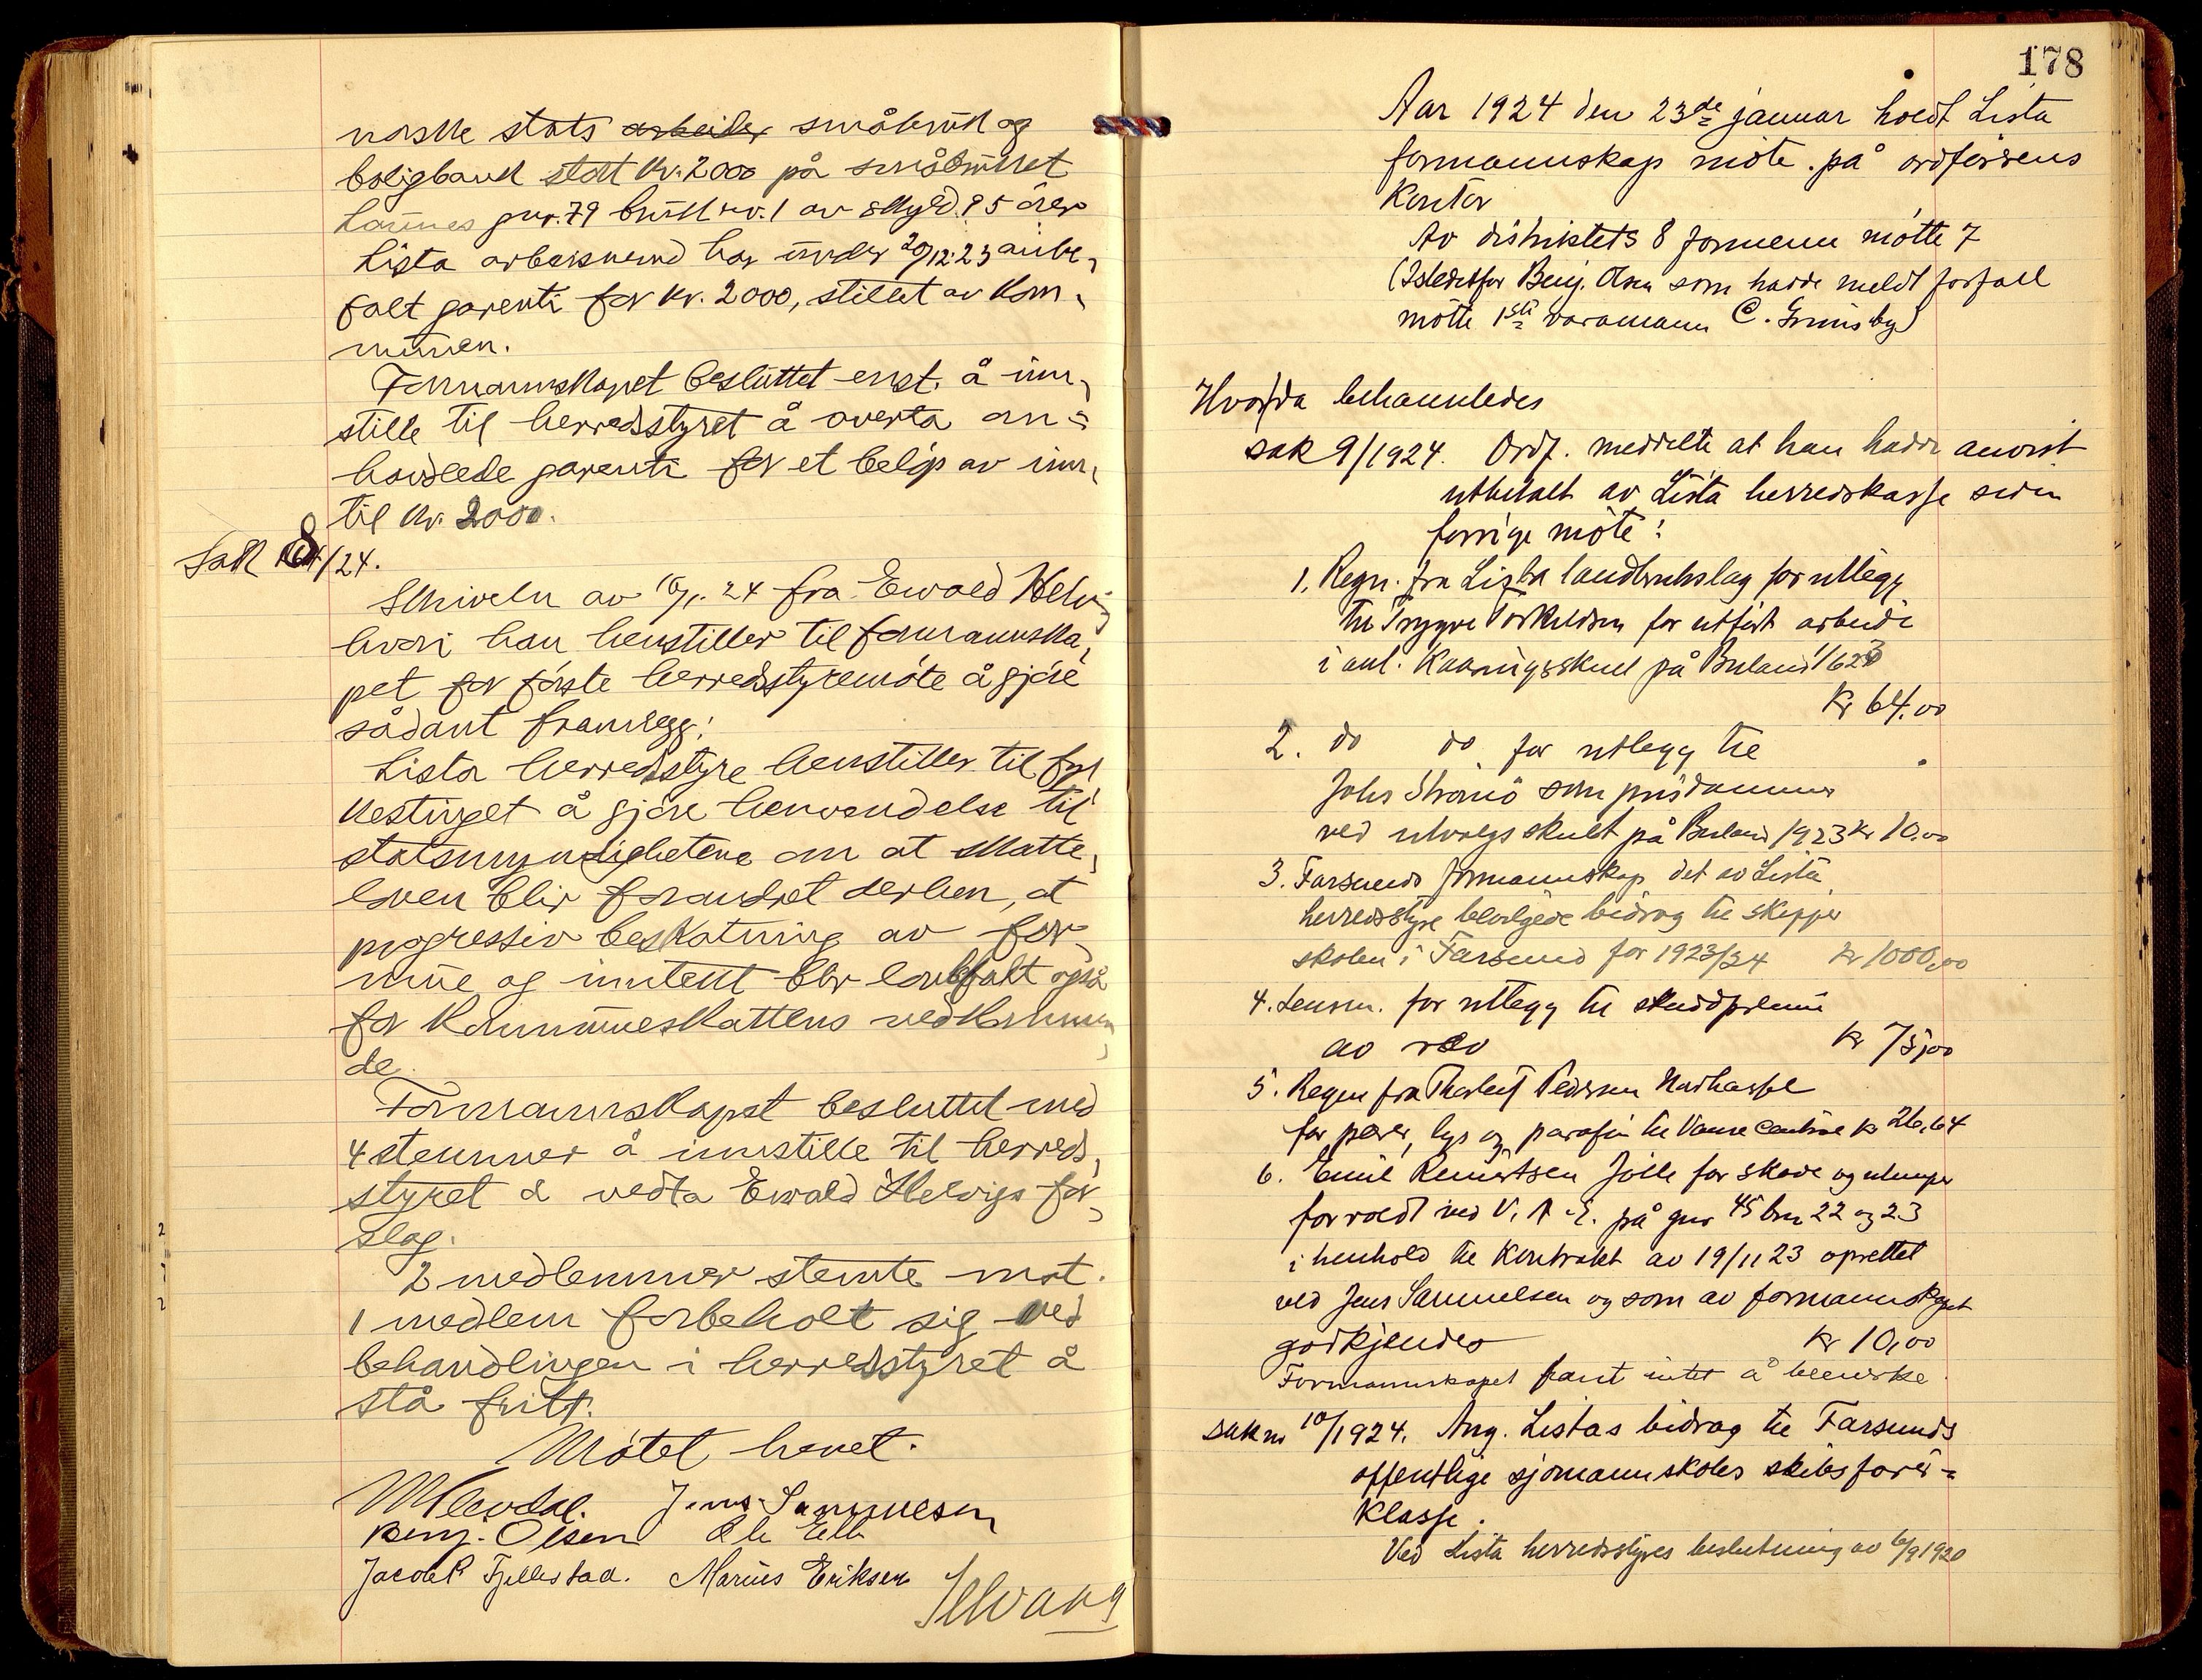 norske stats arbeider småbruk og
boligbank stort kr. 2000 på småbruket
Launes gnr. 79 bruk nr. 1 av skyld 95 ører
Lista arbeisnemd har under 20/12.23 anbe-
falt garenti for kr. 2000, stillet av kom-
munen.
Formannskapet besluttet enst. å inn-
stille til herredsstyret å overta an=
hovdlede garenti for et belöp av inn-
til kr. 2000.
Sak 8/24.
Skrivelse av 10/1. 24 fra Ewald Helvig
hvori han henstiller til formannska-
pet for förste herredsstyremöte å gjöre
sådant framlegg:
Lista herredsstyre henstiller til fyl
kestinget å gjöre henvendelse til
statsmyndighetene om at skatte-
loven blir forandret derhen, at
progressiv beskatning av for-
mue og inntekt blir lovbefalt også
for kommuneskattens vedkommen
de.
Formannskapet besluttet med
4 stemmer å innstille til herreds-
styret å vedta Ewald Helvigs for-
slag.
2 medlemmer stemte mot.
1 medlem forbeholt sig ved
behandlingen i herredsstyret å
stå fritt.
Mötet hevet.
Jens Samuelsen
Benj. Olsen
Jacob R Fjellestad. Marius Eriksen
178
Aar 1924 den 23de januar holdt Lista
formannskap möte på ordförerens
Kontor
Av distriktets 8 formenn mötte 7
(Istedetfor Benj. Olsen som hadde meldt forfall
mötte 1ste varamann C. Grimsby)
Hvorda behannledes
sak 9/1924. Ordf. meddelte at han hadde anvist
utbetalt av Lista herredskasse siden
forrige möte:
1. Regn. fra Lista landbrukslag for utlegg
til Trygve Torkildsen for utfört arbeide
i anl. Kaaringsskuet på Buland 1/6 23
Kr 64.00
2. do do for utlegg til
Johs Strömö som prisdommer
ved utvalgsskuet på Buland 1923 kr 10.00
3. Farsunds formannskap det av Lista
herredsstyre bevilgede bidrag til skipper
skolen i Farsund for 1923/24 kr 1000,00
4. Lensm. for utlegg til skuddpremie
av rev kr 75,00
5. Regn fra Thorleif Pedersen Nordhassel
for pærer, lys og parafin til Vanse Central kr 26,64
6. Emil Reinertsen Jölle for skade og ulemper
forvoldt ved V. A. E. på gnr 45 bnr 22 og 23
i henhold til Kontrakt av 19/11 23 oprettet
ved Jens Samuelsen og som av formannskapet
godkjendes kr 10,00
Formannskapet fant intet å bemerke
sak nr 10/1924. Ang. Listas bidrag til Farsunds
offentlige sjömannskoles skibsförer=
klasse.
Ved Lista herredsstyres beslutning av 6/9 1920